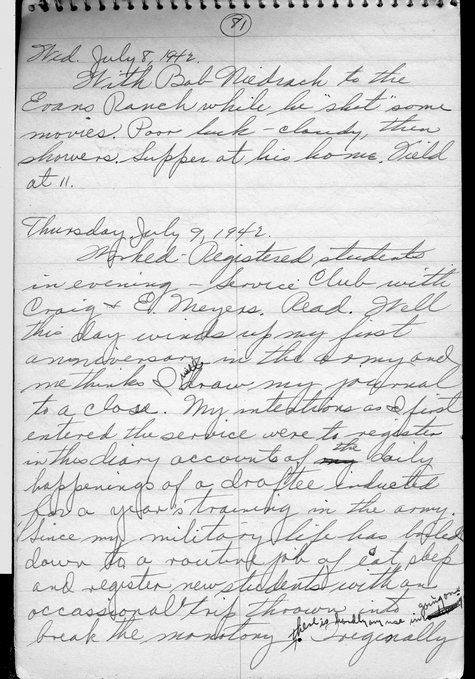 81
Wed. July 8, 1942.
With Bob Niedrach to the
Evans Ranch while he "shot" some
movies. Poor luck - cloudy, then
showers. Supper at his home. Field
at 11.
Thursday July 9, 1942.
Worked. Registered students
in evening - Service Club with
Craig & E. Meyers. Read. Well
this day winds up my first
anniversary in the army and
me thinks I will draw my journal
to a close. My intentions as I first
entered the service were to register
in this diary accounts of my the daily
happenings of a draftee inducted
for a year's training in the army.
Since my military life has boiled
down to a routine job of eat, sleep
and register new students with an
occassional trip thrown into
break the monotony there is hardly any use in going on.
I originally